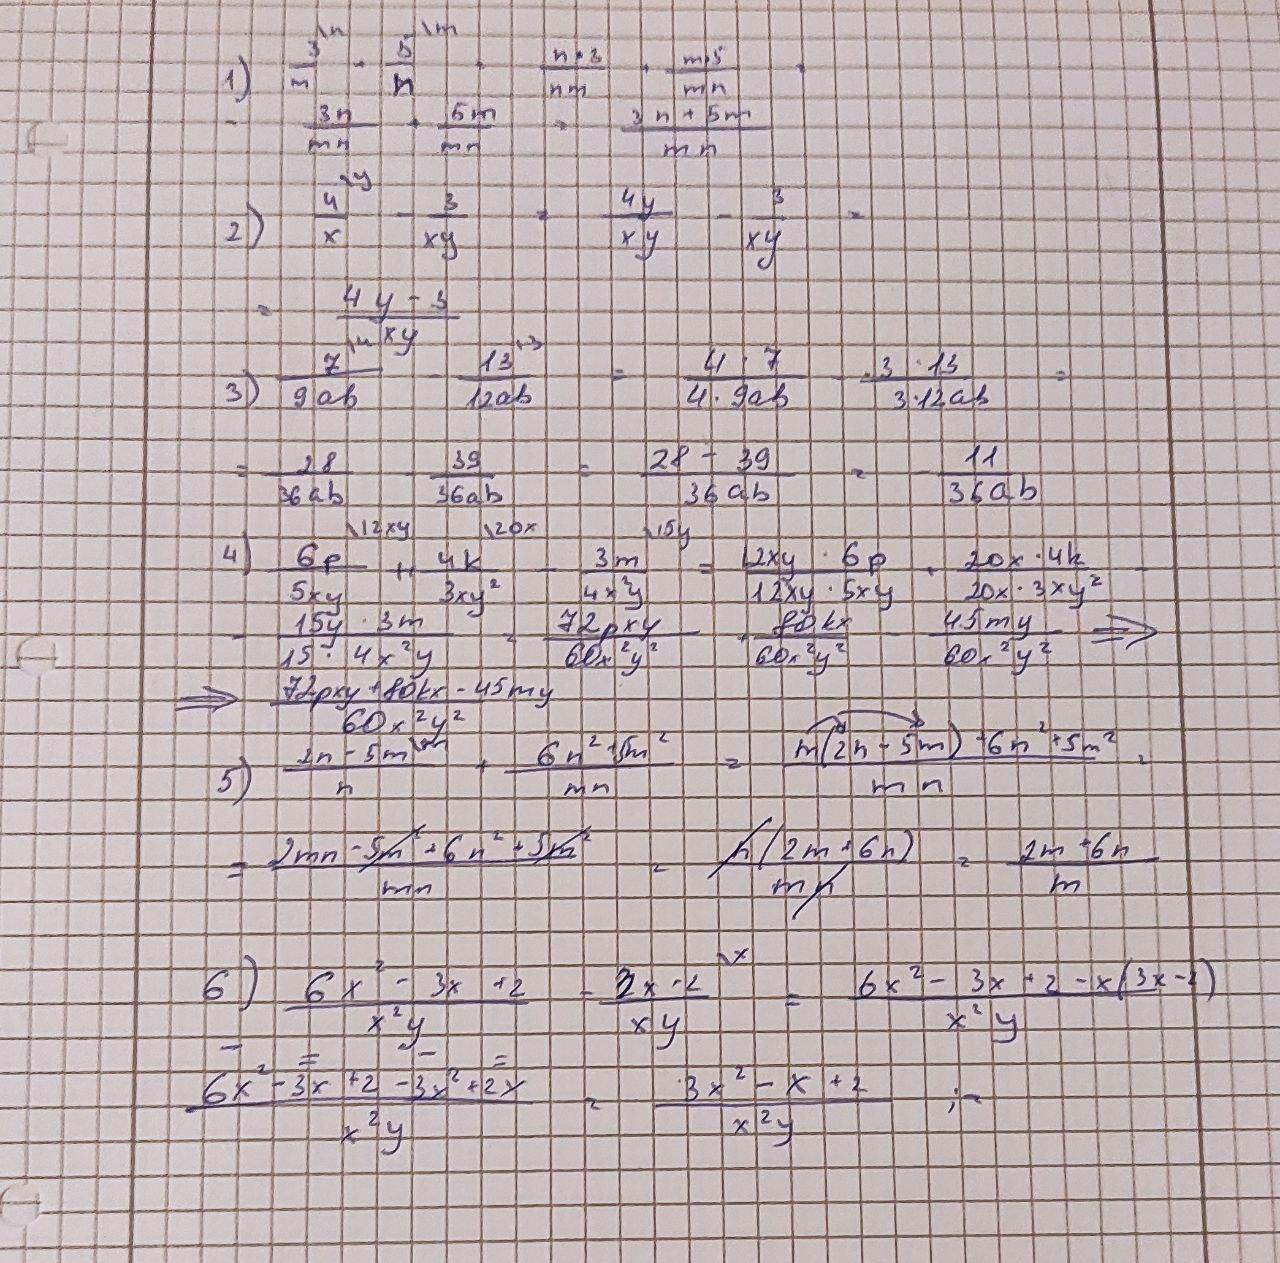 1) 3\n/m + 5\m/n = n·3/nm + m·5/mn =
= 3n/mn + 5m/mn = 3n+5m/mn
2) 4\y/x - 3/xy = 4y/xy - 3/xy =
= 4y-3/xy
3) 7\4/9ab - 13\3/12ab = 4·7/4·9ab - 3·13/3·12ab =
= 28/36ab - 39/36ab = 28-39/36ab = - 11/36ab
4) 6p\12xy/5xy + 4k\20x/3xy² - 3m\15y/4x²y = 12xy·6p/12xy·5xy + 20x·4k/20x·3xy² -
- 15y·3m/15·4x²y = 72pxy/60x²y² + 80kx/60x²y² - 45my/60x²y² ⇒
⇒ 72pxy+80kx-45my/60x²y²
5) 2n-5m\m/n + 6n²+5m²/mn = m(2n-5m)+6n²+5m²/mn =
= 2mn-5m²+6n²+5m²/mn = n(2m+6n)/mn = 2m+6n/m
6) 6x²-3x+2/x²y - 3x-2\x/xy = 6x²-3x+2-x(3x-2)/x²y
6x²-3x+2-3x²+2x/x²y = 3x²-x+2/x²y ;-